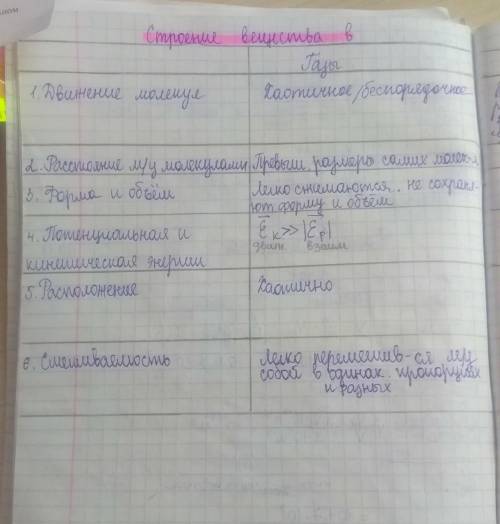 Строение вещества в
Газы
1. Движение молекул
Хаотичное/беспорядочное
2. Расстояние м/у молекулами
Превыш. размеры самих молек-л
3. Форма и объём
Легко сжимаются, не сохраня-
ют форму и объём
4. Потенциальная и
кинетическая энергии
Eк >> |Eр|
движ. взаим
5. Расположение
Хаотично
6. Смешиваемость
Легко перемешив-ся между
собой в одинак. пропорциях
и разных